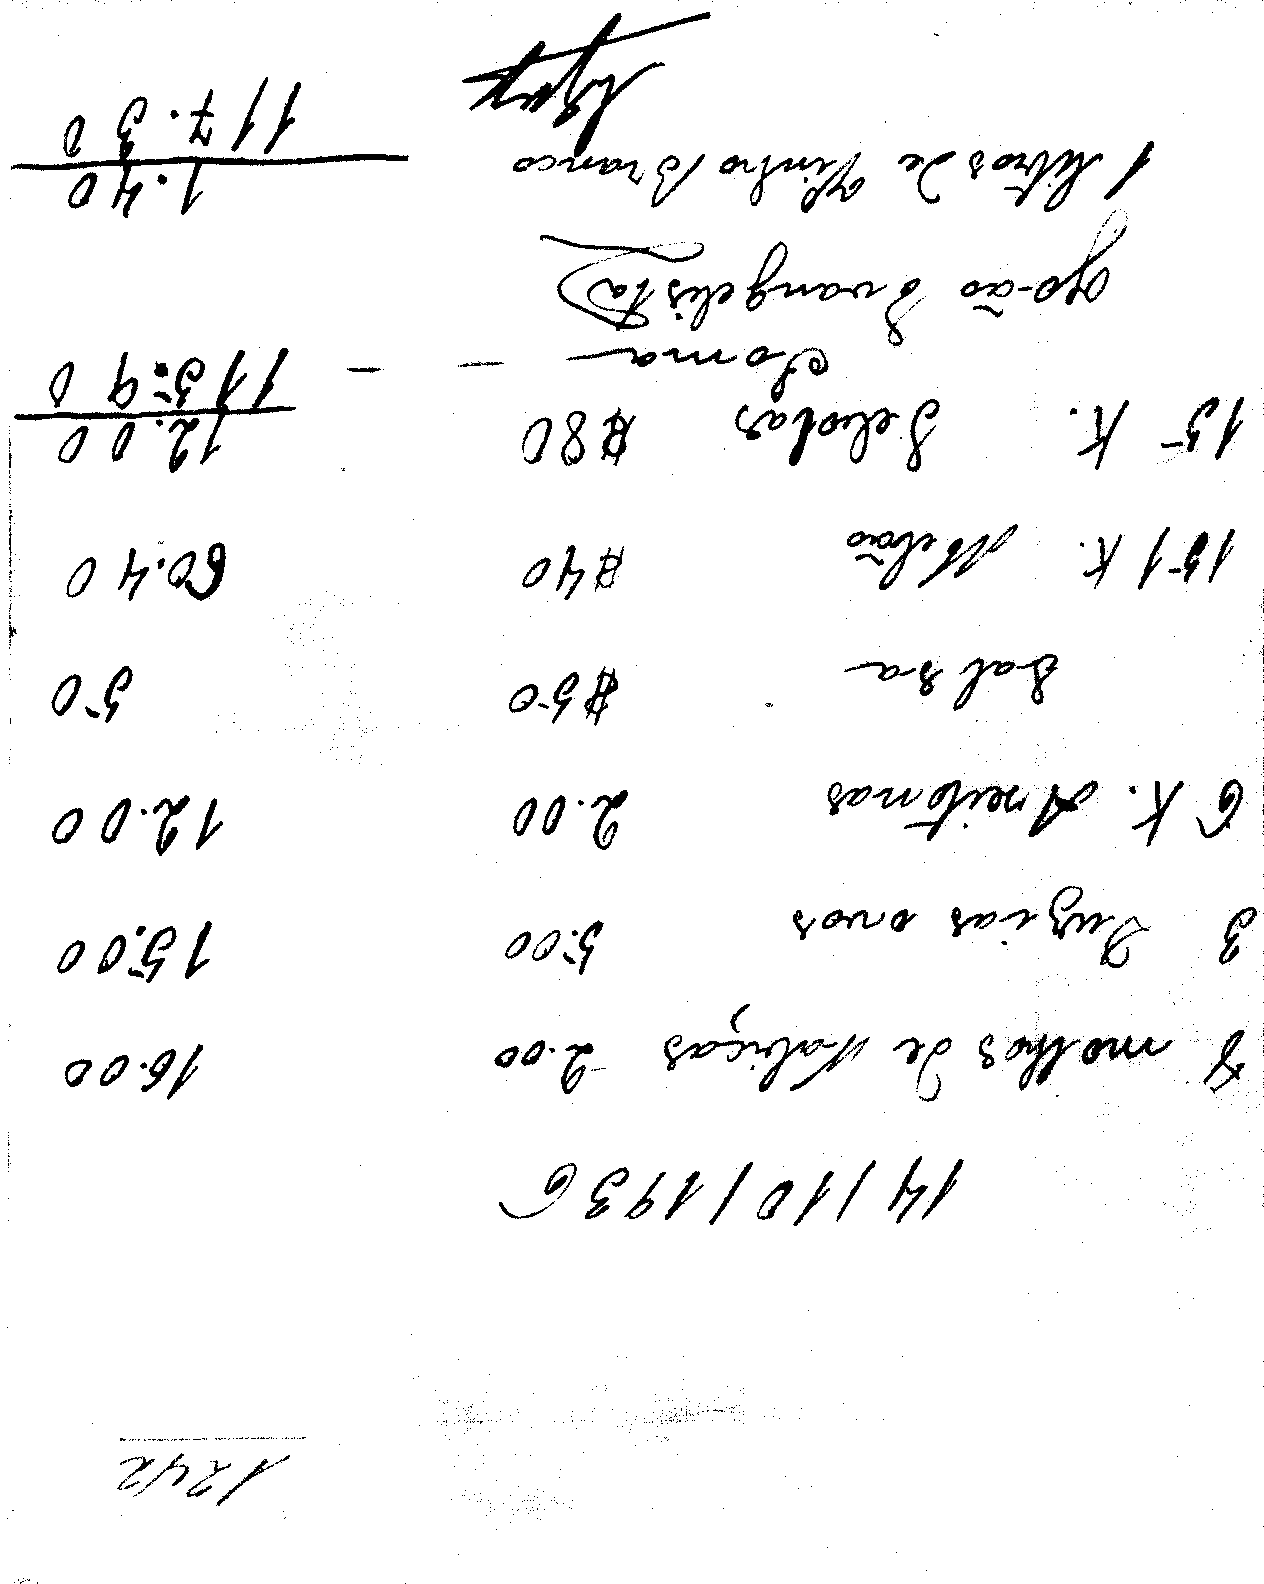 1242
14/10/1936
8 molhos de Nabiças 2.00 16.00
3 Duzias ovos 5.00 15.00
6 K. Azeitonas 2.00 12.00
Salsa $50 50
151 K. Melão $40 60.40
15 K. Sebolas $80 12.00
Soma — — 115.90
João Evangelista
1 litros de Vinho Branco 1.40
117.30